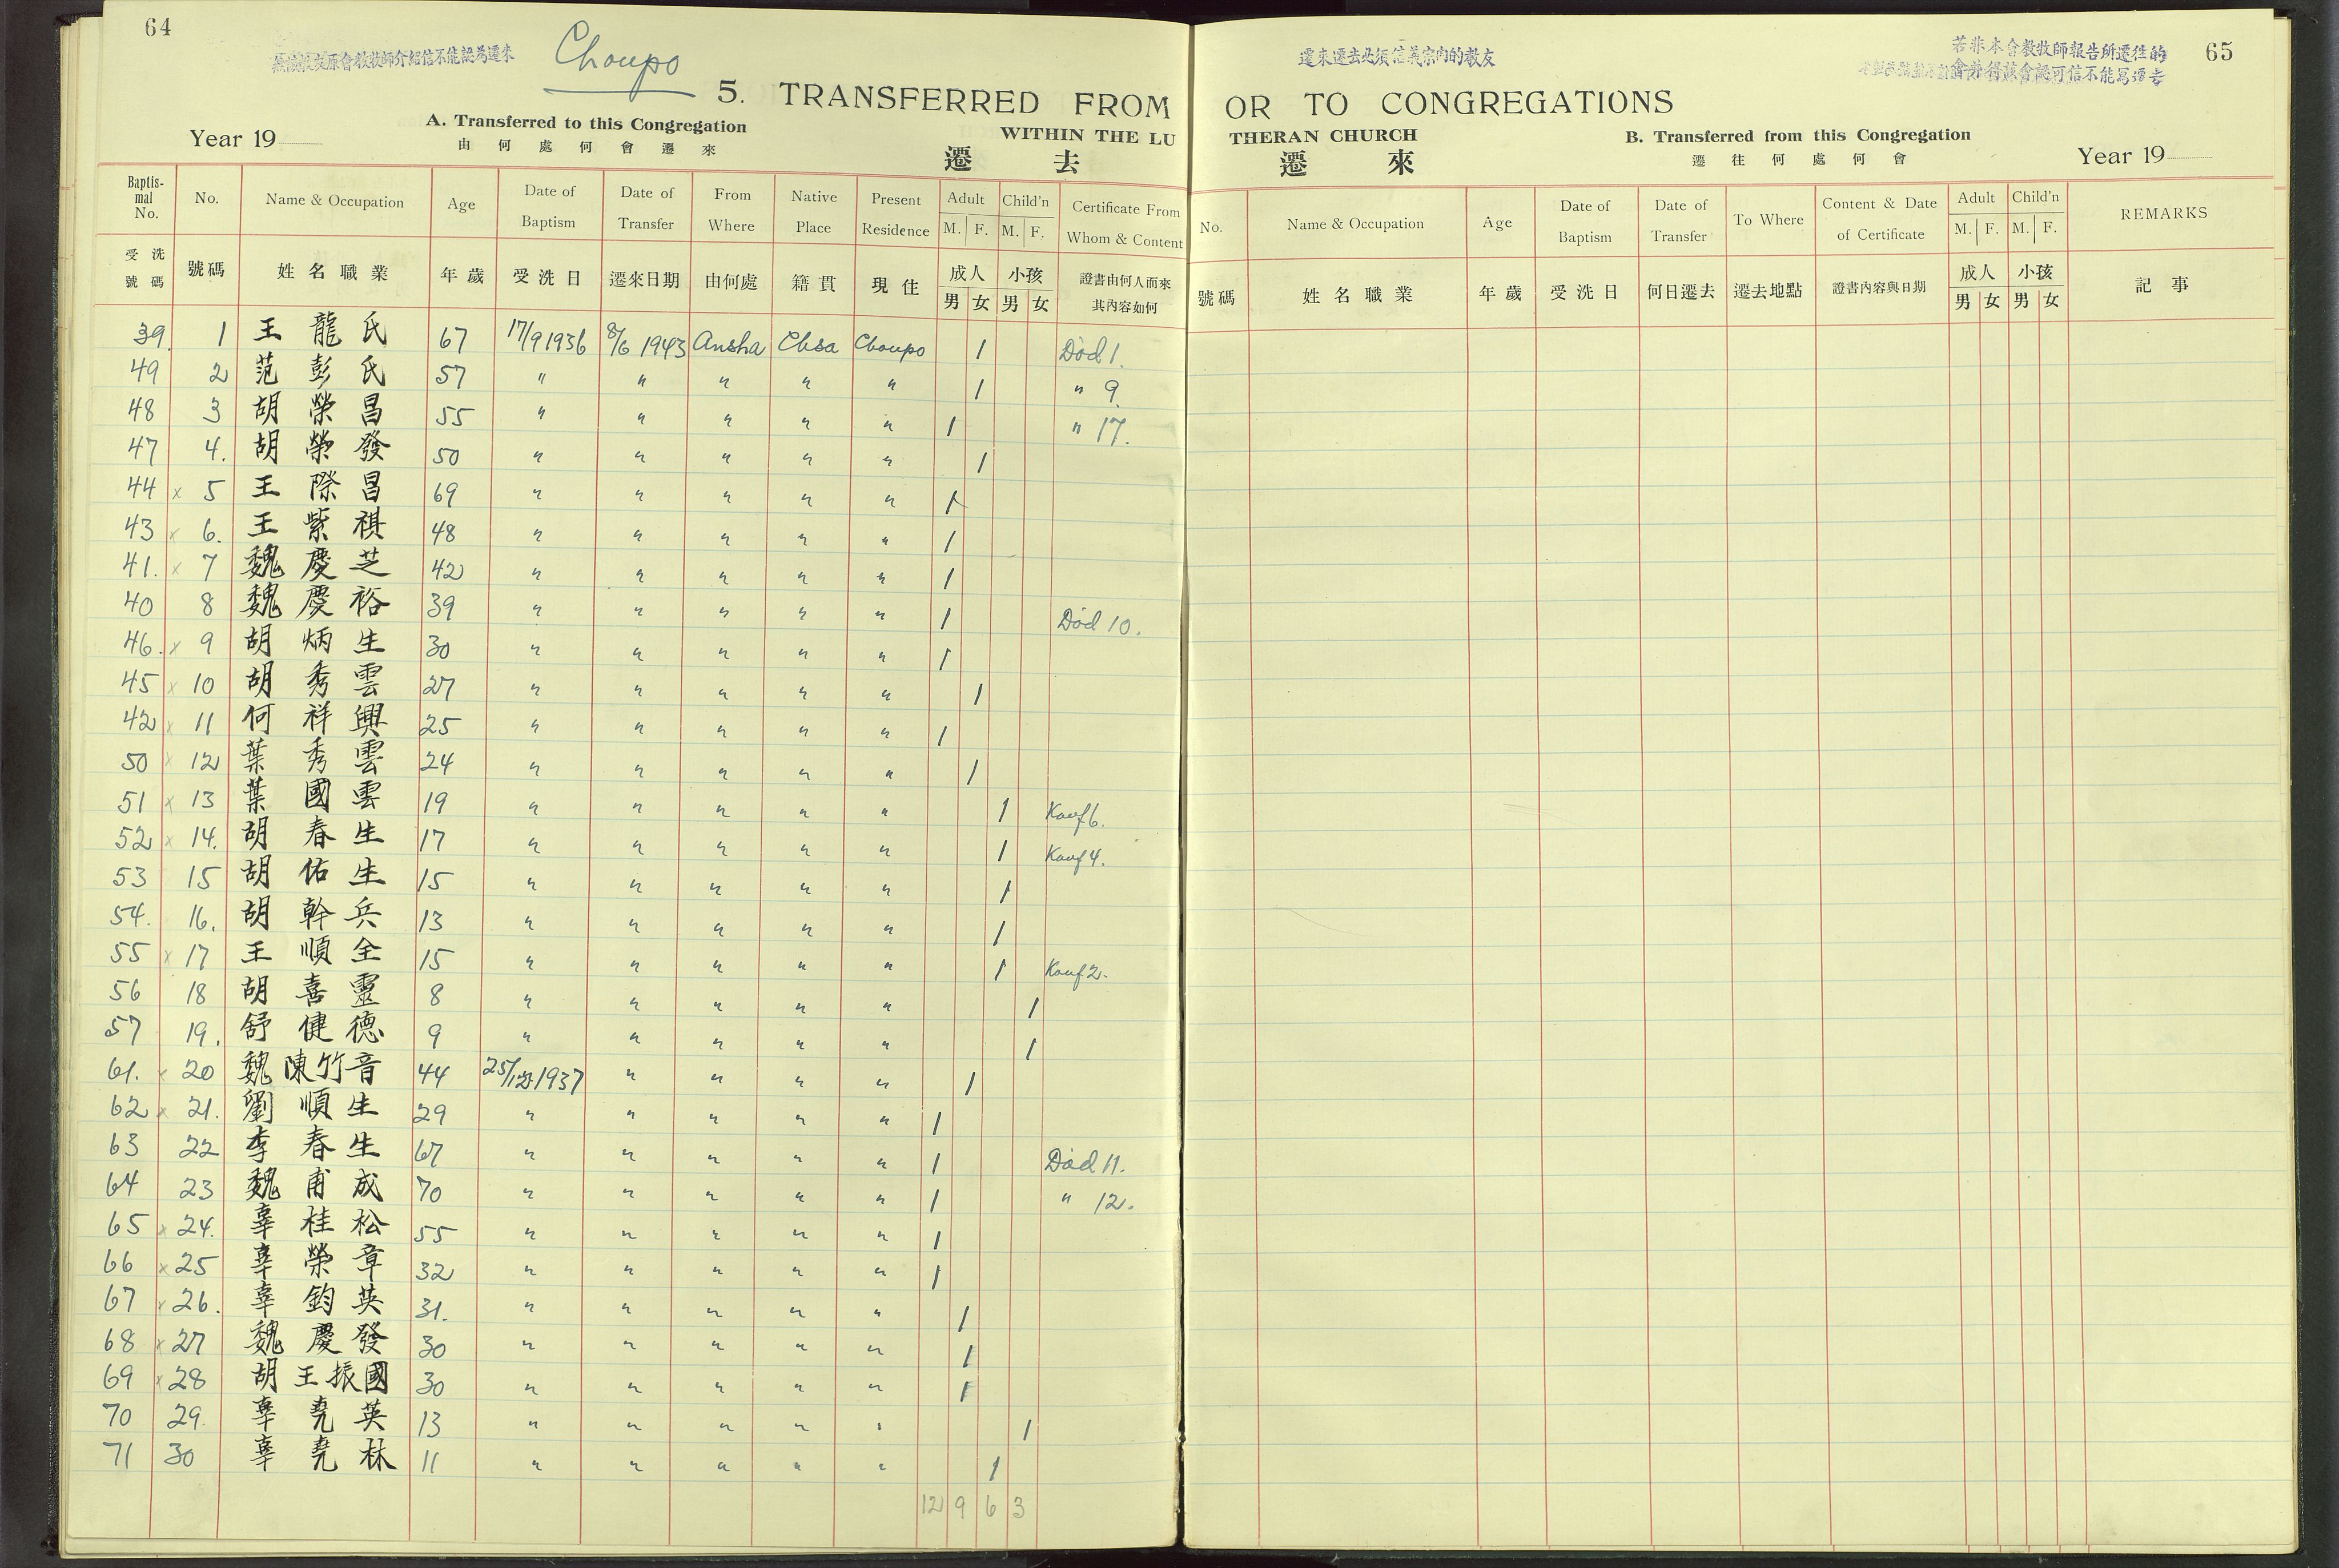 64
Choupo
遷來遷去必須信義宗內的教友
若非本會教牧師報告所遷往的
65
5. TRANSFERRED FROM OR TO CONGREGATIONS
A. Transferred to this Congregation WITHIN THE LUTHERAN CHURCH B. Transferred from this Congregation
Year 19 由何處何會遷來 遷去 遷來 遷往何處何會 Year 19
Baptismal No. No. Name & Occupation Age Date of Baptism Date of Transfer From Where Native Place Present Residence Adult M. F. Child'n M. F. Certificate From Whom & Content
受洗號碼 號碼 姓名職業 年歲 受洗日 遷來日期 由何處 籍貫 現住 成人 男 女 小孩 男 女 證書由何人而來其內容如何
39. 1 王龍氏 67 17/9 1936 8/6 1943 Ansha Chsa Choupo 1 Död 1.
49 2 范彭氏 57 " " " " " 1 " 9.
48 3 胡榮昌 55 " " " " " 1 " 17.
47 4. 胡榮發 50 " " " " " 1
44 x 5 王際昌 69 " " " " " 1
43 x 6. 王紫祺 48 " " " " " 1
41. x 7 魏慶芝 42 " " " " " 1
40 8 魏慶裕 39 " " " " " 1 Död 10.
46. x 9 胡炳生 30 " " " " " 1
45 x 10 胡秀雲 27 " " " " " 1
42 x 11 何祥興 25 " " " " " 1
50 x 12 葉秀雲 24 " " " " " 1
51 x 13 葉國雲 19 " " " " " 1 Konf 6.
52 x 14. 胡春生 17 " " " " " 1 Konf 4.
53 15 胡佑生 15 " " " " " 1
54. 16. 胡幹兵 13 " " " " " 1
55 x 17 王順全 15 " " " " " 1 Konf 2.
56 18 胡喜靈 8 " " " " " 1
57 19. 舒健德 9 " " " " " 1
61. x 20 魏陳竹音 44 25/12 1937 " " " " 1
62 x 21. 劉順生 29 " " " " " 1
63 22 李春生 67 " " " " " 1 Död 11.
64 23 魏甫成 70 " " " " " 1 " 12.
65 x 24. 辜桂松 55 " " " " " 1
66 x 25 辜榮章 32 " " " " " 1
67 x 26. 辜鈞英 31. " " " " " 1
68 x 27 魏慶發 30 " " " " " 1
69 x 28 胡王振國 30 " " " " " 1
70 29. 辜堯英 13 " " " " " 1
71 30 辜堯林 11 " " " " " 1
12 9 6 3
No. Name & Occupation Age Date of Baptism Date of Transfer To Where Content & Date of Certificate Adult M. F. Child'n M. F. REMARKS
號碼 姓名職業 年歲 受洗日 何日遷去 遷去地點 證書內容與日期 成人 男 女 小孩 男 女 記事